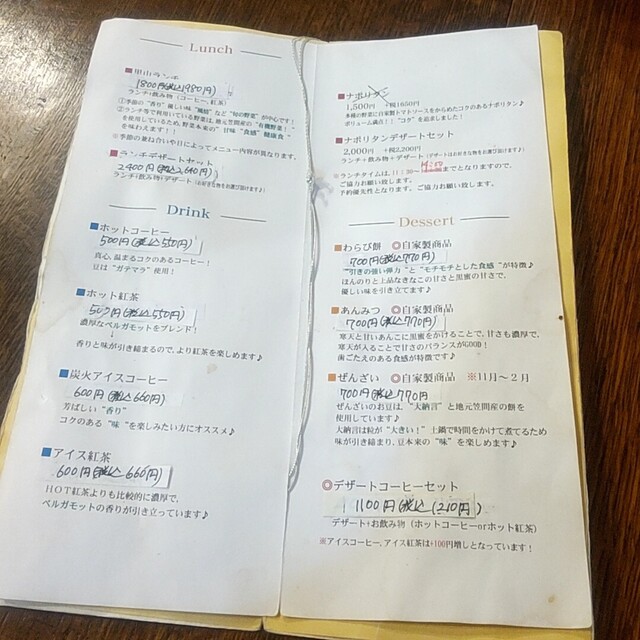 Lunch
■里山ランチ
1800円(税込1980円)
ランチ+飲み物(コーヒー、紅茶)
①季節の“香り”優しい味“風感”など“旬の野菜”が中心です!
②ランチ等で利用している野菜は、地元笠間産の“有機野菜”
を使用しているため、野菜本来の“甘味”“食感”“健康食”
を味わえます!!
※季節の兼ね合いや月によってメニュー内容が異なります。
■ランチデザートセット
2400円(税込2,640円)
ランチ+飲み物+デザート(お好きな物をお選び頂けます♪)
Drink
■ホットコーヒー
500円(税込550円)
真心、温まるコクのあるコーヒー!
豆は“ガテマラ”使用!
■ホット紅茶
500円(税込550円)
濃厚なベルガモットをブレンド!
↓
香りと味が引き締まるので、より紅茶を楽しめます♪
■炭火アイスコーヒー
600円(税込660円)
芳ばしい“香り”
コクのある“味”を楽しみたい方にオススメ♪
■アイス紅茶
600円(税込660円)
HOT紅茶よりも比較的に濃厚で、
ベルガモットの香りが引き立っています♪
■ナポリタン
1,500円 税1650円
多種の野菜に自家製トマトソースをからめたコクのあるナポリタン♪
ボリューム満点!!“コク”を追求しました!
■ナポリタンデザートセット
2,000円 税2,200円
ランチ+飲み物+デザート(デザートはお好きな物をお選び頂けます♪)
※ランチタイムは、11:30~ までとなりますので、
ご協力お願い致します。
予約優先性となります。ご協力お願い致します。
Dessert
■わらび餅 ◎自家製商品
700円(税込770円)
“引きの強い弾力”と“モチモチとした食感”が特徴♪
ほんのりと上品なきなこの甘さと黒蜜の甘さで、
優しい味を引き立てます♪
■あんみつ ◎自家製商品
700円(税込770円)
寒天と甘いあんこに黒蜜をかけることで、甘さも濃厚で、
寒天が入ることで甘さのバランスがGOOD!
歯ごたえのある食感が特徴です♪
■ぜんざい ◎自家製商品 ※11月~2月
700円(税込770円
ぜんざいのお豆は、“大納言”と地元笠間産の餅を
使用しています♪
大納言は粒が“大きい!”土鍋で時間をかけて煮てるため
味が引き締まり、豆本来の“味”を楽しめます♪
◎デザートコーヒーセット
1100円(税込1210円)
デザート+お飲み物(ホットコーヒーorホット紅茶)
※アイスコーヒー、アイス紅茶は+100円増しとなっています!